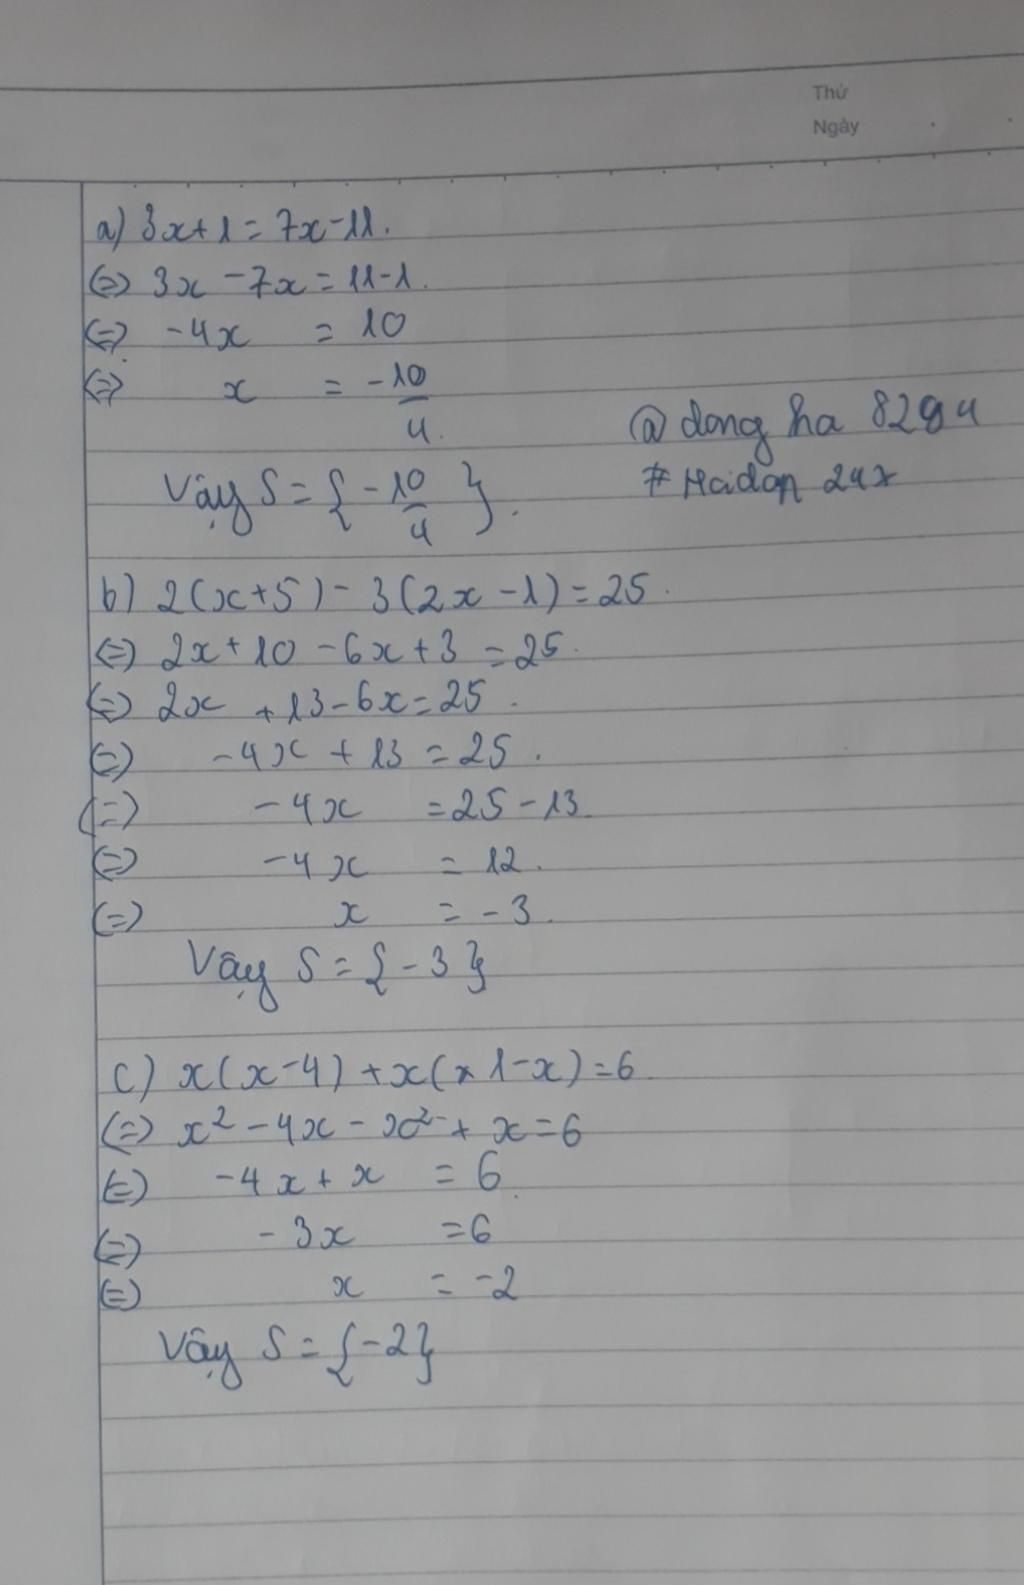 Thứ
Ngày
a) 3x+1=7x-11.
(=) 3x-7x=11-1.
(=) -4x = 10
(=) x = -10/4.
@ dong ha 8294
# Hoidap 247
Vậy S={-10/4}.
b) 2(x+5)-3(2x-1)=25.
(=) 2x+10-6x+3=25.
(=) 2x+13-6x=25.
(=) -4x+13=25.
(=) -4x=25-13.
(=) -4x=12.
(=) x=-3.
Vậy S={-3}
c) x(x-4)+x(1-x)=6.
(=) x²-4x-x²+x=6
(=) -4x+x=6.
(=) -3x=6
(=) x=-2
Vậy S={-2}